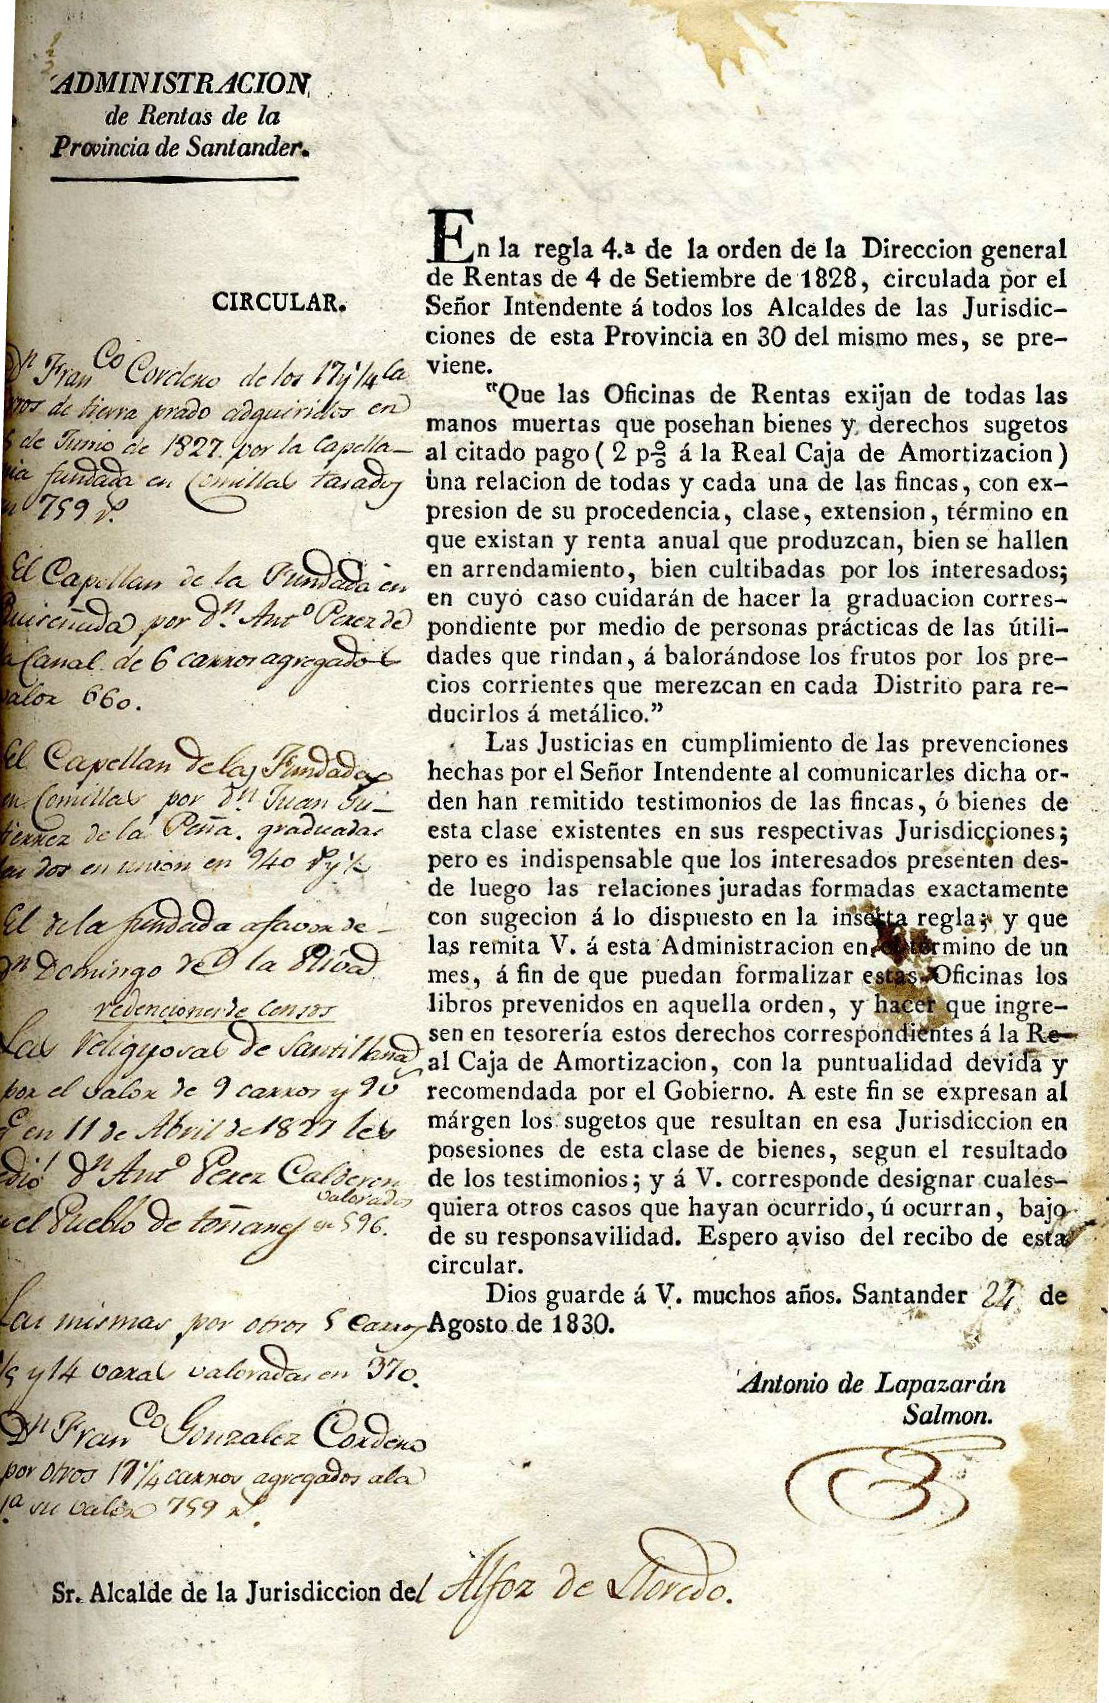 ADMINISTRACION
de Rentas de la
Provincia de Santander.
CIRCULAR.
Dn Franco Cordero de los 17 y 1/4 ca
rros de tierra prado adquiridos en
5 de Junio de 1827 por la Capella-
nia fundada en Comillas tasados
en 759 rs.
El Capellan de la Fundada en
Ruiseñada por dn. Anto Perez de
la Canal de 6 carros agregados
valor 660.
El Capellan de las Fundadas
en Comillas por dn Juan Gu-
tierrez de la Peña. graduadas
las dos en union en 940 rs y 1/2
El de la fundada a favor de
dn Domingo de la Riva
redenciones de Censos
Las Religiosas de Santillana
por el valor de 9 carros y 90
en 11 de Abril de 1827 les
dió dn Anto Perez Calderon
valorados
en el Pueblo de toñanes en 596.
Las mismas por otros 5 carros
y 14 varas valoradas en 370.
Dn Franco Gonzalez Cordero
por otros 17 1/4 carros agregados a la
1a su valor 759 rs.
En la regla 4.ª de la orden de la Direccion general
de Rentas de 4 de Setiembre de 1828, circulada por el
Señor Intendente á todos los Alcaldes de las Jurisdic-
ciones de esta Provincia en 30 del mismo mes, se pre-
viene.
"Que las Oficinas de Rentas exijan de todas las
manos muertas que posehan bienes y derechos sugetos
al citado pago ( 2 p% á la Real Caja de Amortizacion )
una relacion de todas y cada una de las fincas, con ex-
presion de su procedencia, clase, extension, término en
que existan y renta anual que produzcan, bien se hallen
en arrendamiento, bien cultibadas por los interesados;
en cuyo caso cuidarán de hacer la graduacion corres-
pondiente por medio de personas prácticas de las útili-
dades que rindan, á balorándose los frutos por los pre-
cios corrientes que merezcan en cada Distrito para re-
ducirlos á metálico."
Las Justicias en cumplimiento de las prevenciones
hechas por el Señor Intendente al comunicarles dicha or-
den han remitido testimonios de las fincas, ó bienes de
esta clase existentes en sus respectivas Jurisdicciones;
pero es indispensable que los interesados presenten des-
de luego las relaciones juradas formadas exactamente
con sugecion á lo dispuesto en la inserta regla; y que
las remita V. á esta Administracion en el término de un
mes, á fin de que puedan formalizar estas Oficinas los
libros prevenidos en aquella orden, y hacer que ingre-
sen en tesorería estos derechos correspondientes á la Re-
al Caja de Amortizacion, con la puntualidad devida y
recomendada por el Gobierno. A este fin se expresan al
márgen los sugetos que resultan en esa Jurisdiccion en
posesiones de esta clase de bienes, segun el resultado
de los testimonios; y á V. corresponde designar cuales-
quiera otros casos que hayan ocurrido, ú ocurran, bajo
de su responsavilidad. Espero aviso del recibo de esta
circular.
Dios guarde á V. muchos años. Santander 24 de
Agosto de 1830.
Antonio de Lapazarán
Salmon.
Sr. Alcalde de la Jurisdiccion del Alfoz de Lloredo.